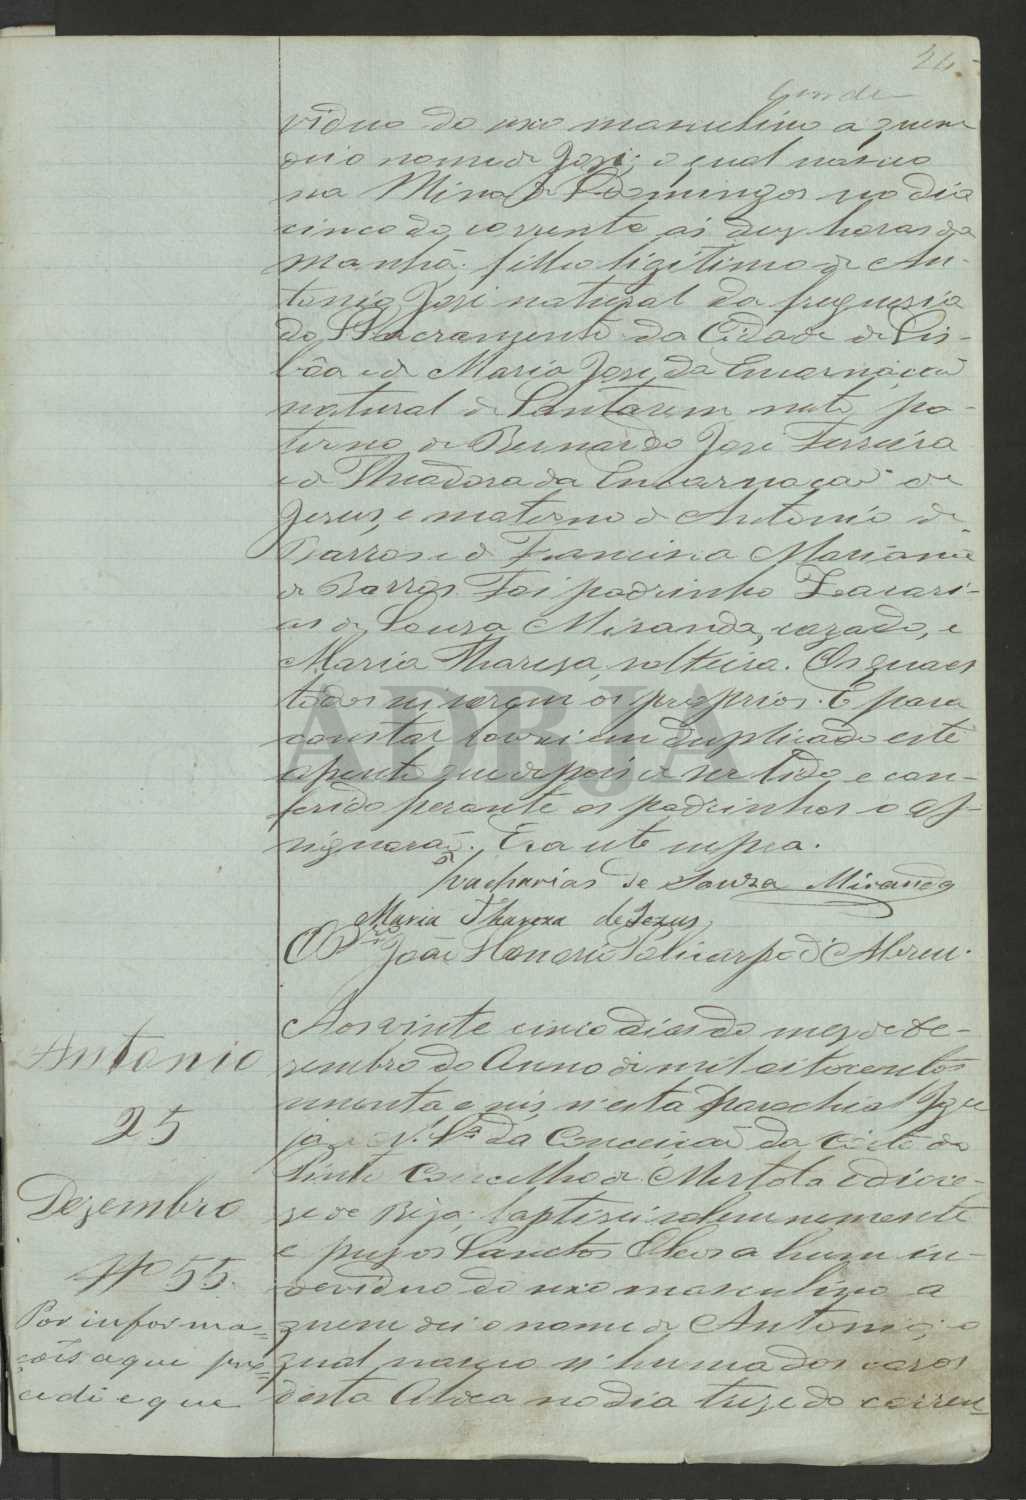 viduo do sexo masculino a quem
dei o nome de José; o qual nasceo
na Mina de S. Domingos no dia
cinco do corrente ás dez horas da
manhã: filho ligitimo de An-
tonio José natural da freguesia
do Sacramento da Cidade de Lis-
bôa e de Maria José da Encarnação
natural de Santarem neto pa-
terno de Bernardo José Ferreira
e de Theadora da Encarnação de
Jesus, e materno de Antonio de
Barros e de Francisca Marianna
de Barros. Foi padrinho Zacari-
as de Souza Miranda, cazado, e
Maria Thareza, solteira. Os quaes
todos sei serem os proprios. E para
constar lavrei em duplicado este
assento que depois de ser lido e con-
ferido perante os padrinhos o as-
signarão. Era ut supra.
Zacharias de Souza Miranda
Maria Thareza de Jezus
O Pr João Honorio Policarpo d'Abreu.
Antonio
25
Dezembro
Nº 55.
Por informa=
cõis a que pro=
cedi e que
Aos vinte cinco dias do mez de De-
zembro do Anno de mil oitocentos
e seis n'esta Parochial Igre
ja de N. Srª da Conceição da Côrte do
Pinto Concelho de Mertola e dioce-
ze de Beja; baptizei solemnemente
e puz os Sanctos Oleos a hum in-
deviduo do sexo masculino a
quem dei o nome de Antonio; o
qual nasceo n'huma das cazas
desta Aldea no dia treze do corren=
ADBJA